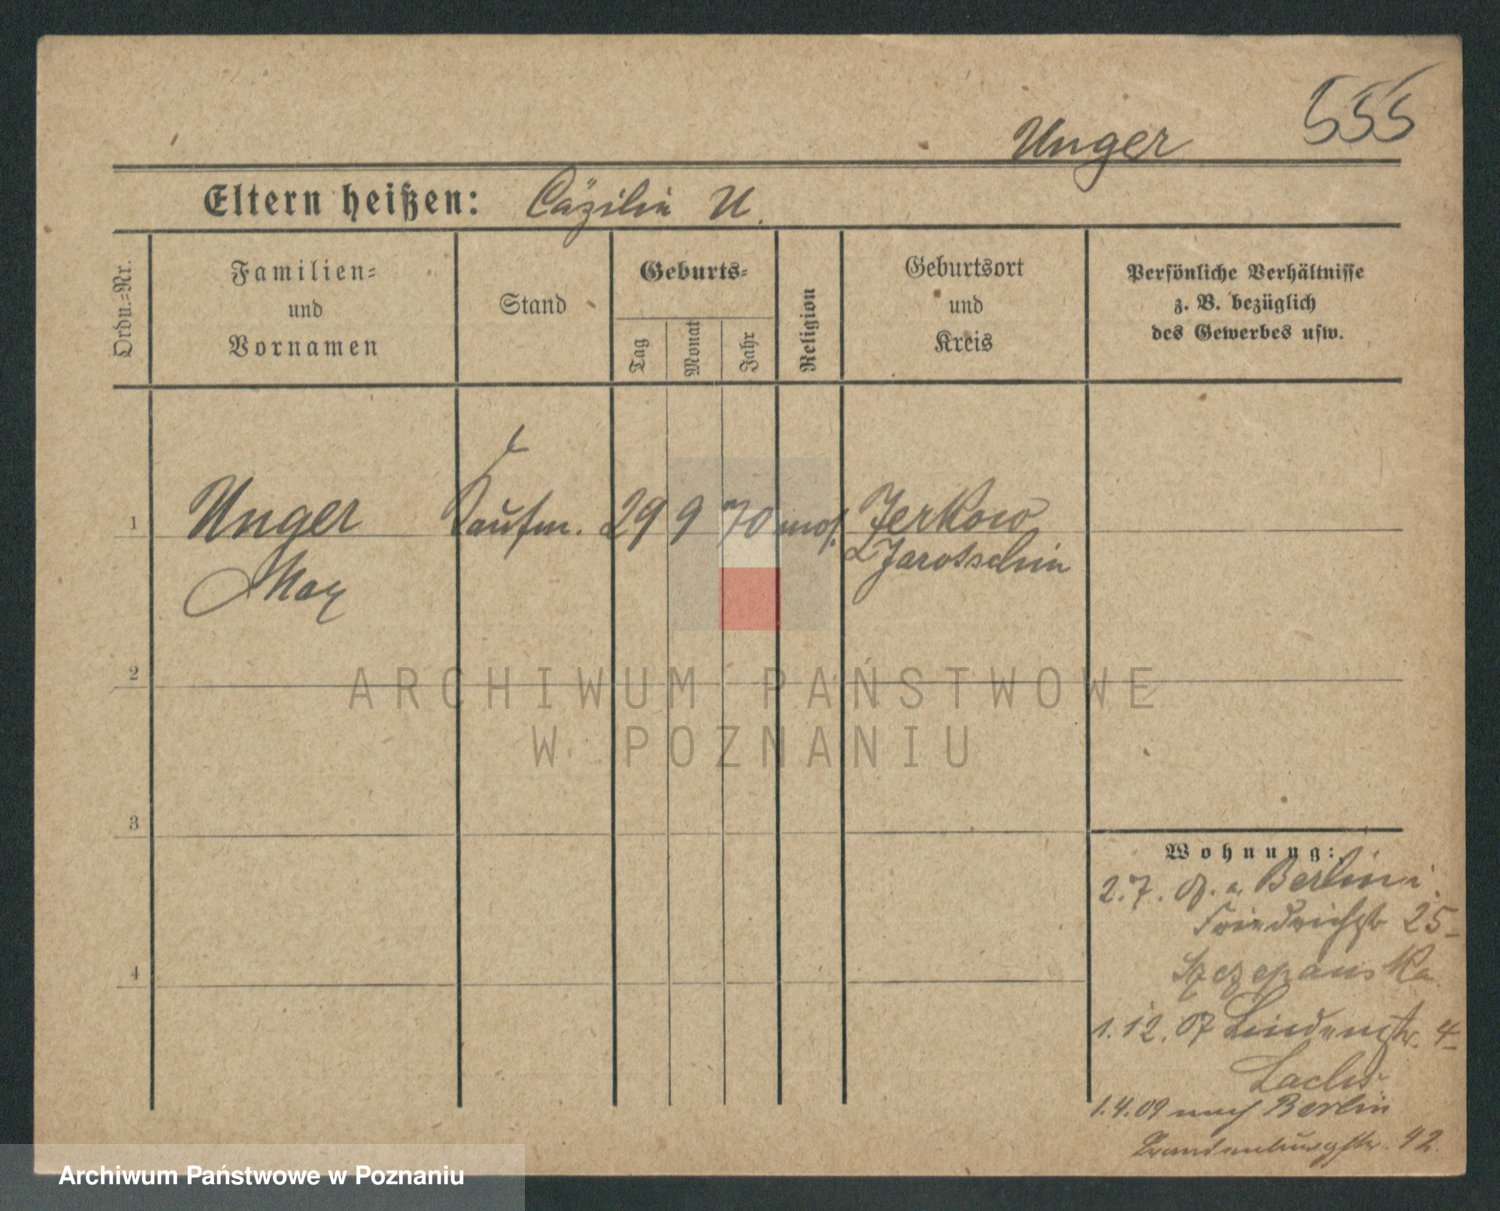 555
Unger
Eltern heißen: Cäzilie U.
Ordn.=Nr.
Familien=
und
Vornamen
Stand
Geburts=
Tag
Monat
Jahr
Religion
Geburtsort
und
Kreis
Persönliche Verhältnisse
z. B. bezüglich
des Gewerbes usw.
1
Unger Kaufm. 29 9 70 mos. Jerkow
Max Jarotschin
2
ARCHIWUM PAŃSTWOWE
W POZNANIU
3
Wohnung:
2.7. 07. a. Berlin i.
Friedrichstr 25
Szczepanska
4
1.12.07 Lindenstr. 4
Lachs
1.4.09 nach Berlin
Brandenburgstr. 42.
Archiwum Państwowe w Poznaniu